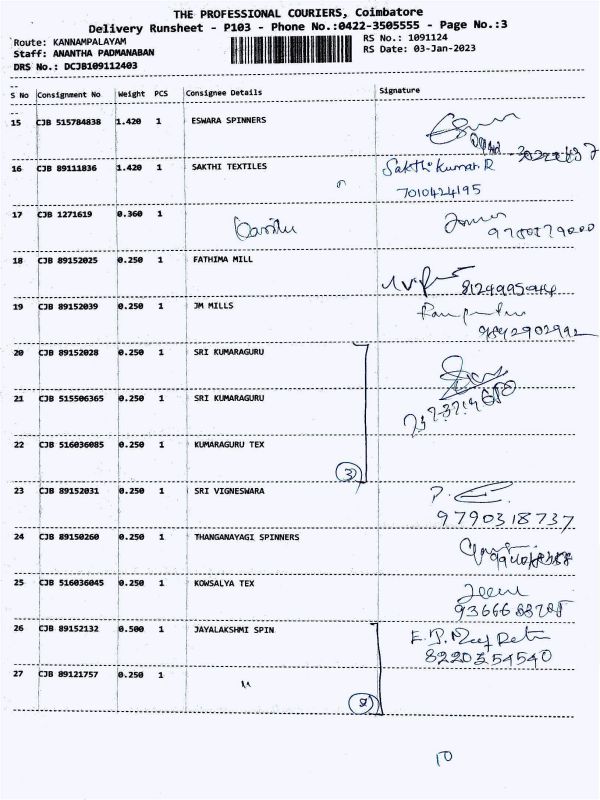 THE PROFESSIONAL COURIERS, Coimbatore
Delivery Runsheet - P103 - Phone No.:0422-3505555 - Page No.:3
Route: KANNAMPALAYAM RS No.: 1091124
Staff: ANANTHA PADMANABAN RS Date: 03-Jan-2023
DRS No.: DCJB109112403
--
S No Consignment No Weight PCS Consignee Details Signature
--
15 CJB 515784838 1.420 1 ESWARA SPINNERS
16 CJB 89111836 1.420 1 SAKTHI TEXTILES Sakthi Kumar R
7010424195
17 CJB 1271619 0.360 1
18 CJB 89152025 0.250 1 FATHIMA MILL
19 CJB 89152039 0.250 1 JM MILLS
9842902992
20 CJB 89152028 0.250 1 SRI KUMARAGURU
21 CJB 515506365 0.250 1 SRI KUMARAGURU
22 CJB 516036085 0.250 1 KUMARAGURU TEX
3
23 CJB 89152031 0.250 1 SRI VIGNESWARA
9790318737
24 CJB 89150260 0.250 1 THANGANAYAGI SPINNERS
25 CJB 516036045 0.250 1 KOWSALYA TEX
26 CJB 89152132 0.500 1 JAYALAKSHMI SPIN
8220354540
27 CJB 89121757 0.250 1 "
10